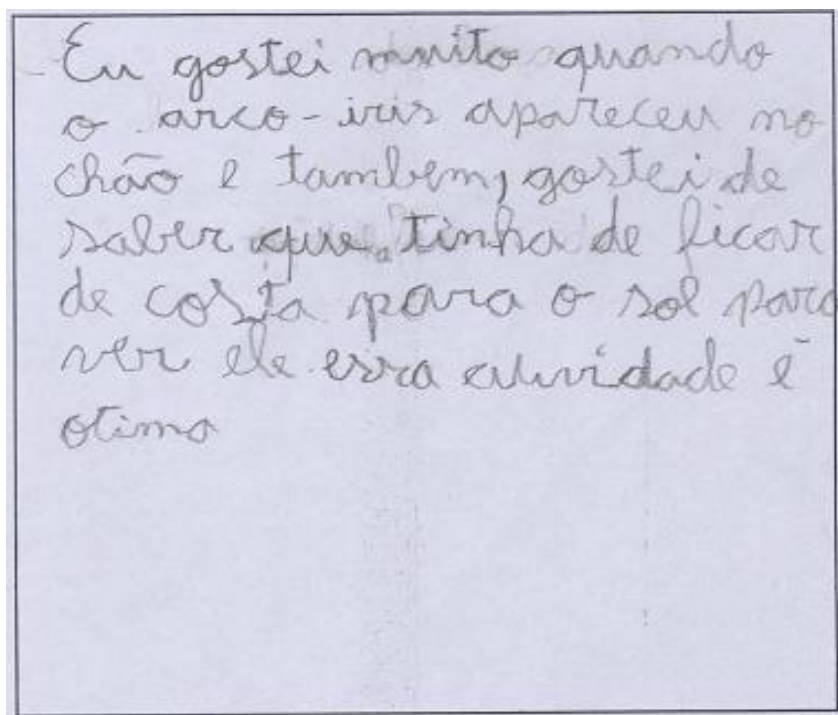 Eu gostei muito quando
o arco-iris apareceu no
chão e tambem, gostei de
saber que tinha de ficar
de costa para o sol para
ver ele essa atividade é
otima